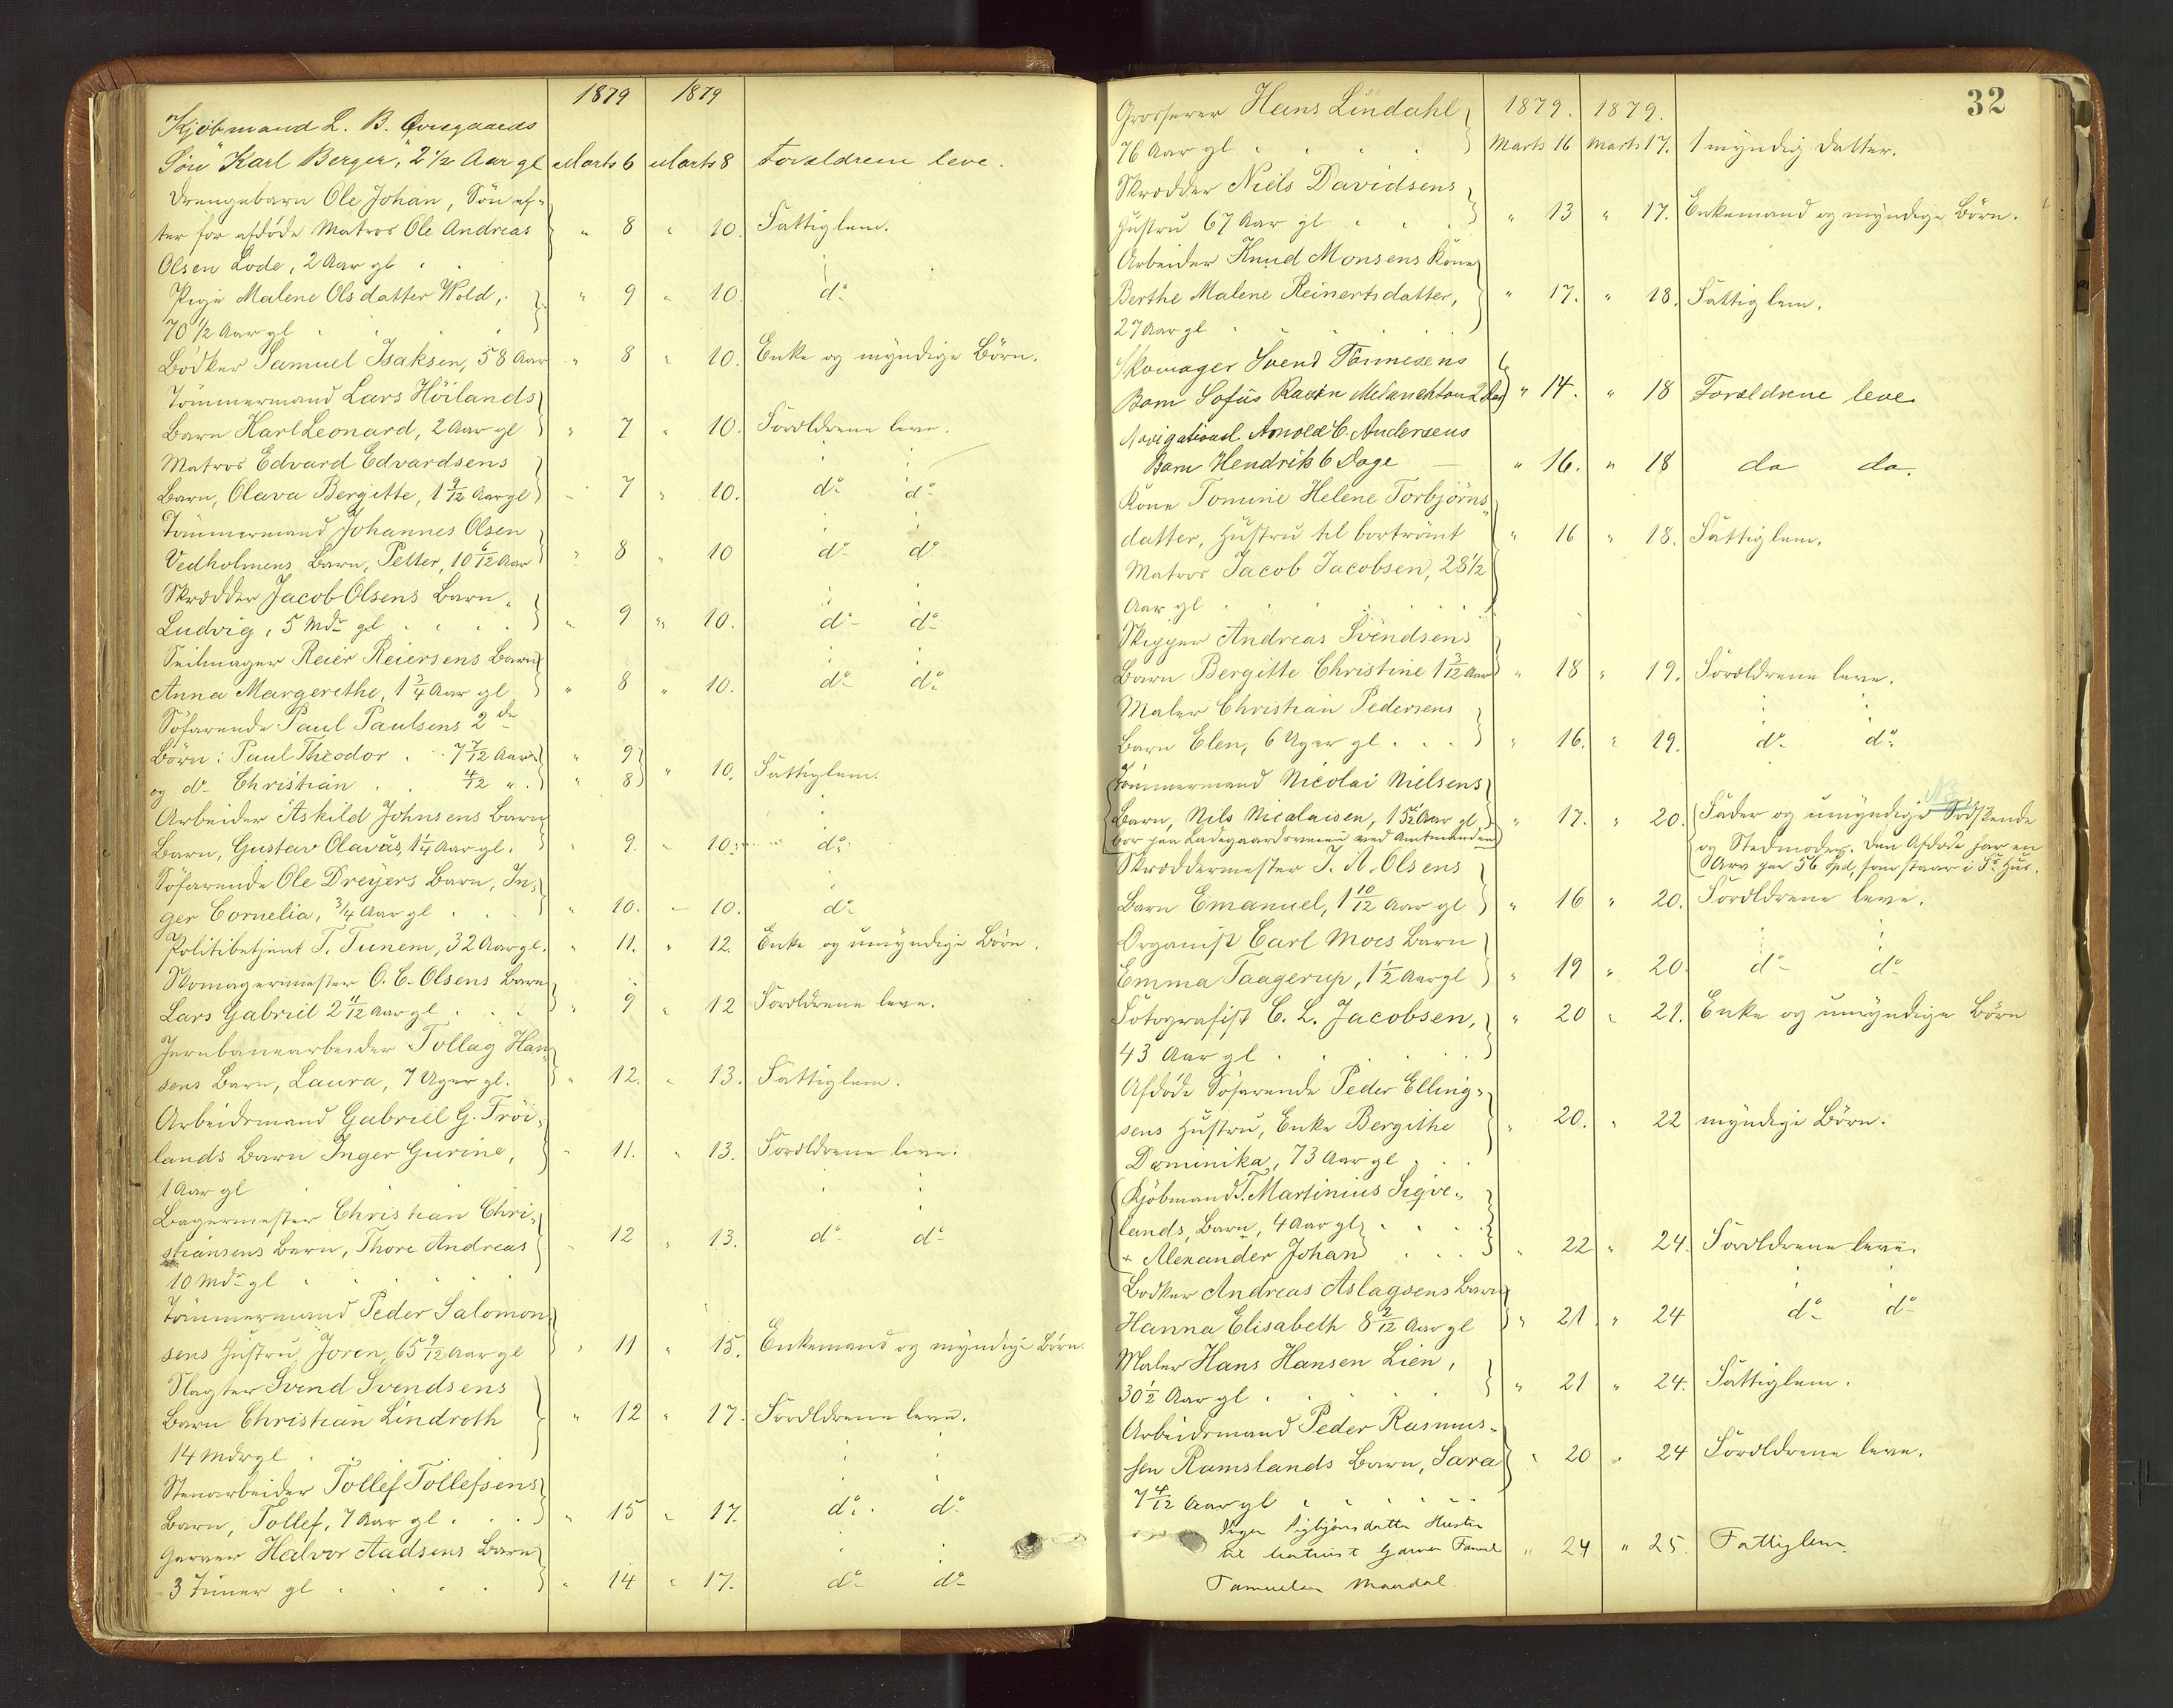 1879 1879
Kjöbmand L. B. Qvregaards
Sön "Karl Berger," 2 1/2 Aar gl Marts 6 Marts 8 Forældrene leve.
Drengebarn Ole Johan, Sön ef-
ter før afdöde Matros Ole Andreas " 8 " 10. Fattiglem.
Olsen Lode, 2 Aar gl
Pige Malene Olsdatter Wold, " 9 " 10. do
70 1/2 Aar gl
Bödker Samuel Isaksen, 58 Aar " 8 " 10. Enke og myndige Börn.
Tömmermand Lars Höilands
Barn Karl Leonard, 2 Aar gl " 7 " 10. Forældrene leve.
Matros Edvard Edvardsens
Barn, Olava Bergitte, 1 9/12 Aar gl - 7 " 10. do do
Tömmermand Johannes Olsen
Vedholmens Barn, Petter, 10 6/12 Aar " 8 " 10 do do
Skrædder Jacob Olsens Barn
Ludvig, 5 Mdr gl " 9 " 10. do do
Seilmager Reier Reiersens Barn
Anna Margerethe, 1 3/4 Aar gl " 8 " 10. do do
Söfarende Paul Paulsens 2de
Börn: Paul Theodor 7 7/12 Aar " 9
og do Christian 4/12 " " 8 " 10. Fattiglem.
Arbeider Askild Johnsens Barn
Barn, Gustav Olavus, 1 1/4 Aar gl. " 9. " 10. do
Söfarende Ole Dreyers Barn, In-
ger Cornelia, 3/4 Aar gl " 10. - 10. do
Politibetjent T. Tunem, 32 Aar gl. " 11. " 12. Enke og umyndige Börn.
Skomagermester O. C. Olsens Barn
Lars Gabriel 2 11/12 Aar gl " 9 " 12 Forældrene leve.
Jernbanearbeider Tollag Han-
sens Barn, Laura, 7 Uger gl. " 12. " 13. Fattiglem.
Arbeidsmand Gabriel G. Tröi-
lands Barn Inger Gurine, " 11. " 13. Forældrene leve.
1 Aar gl
Bagermester Christian Chri-
stiansens Barn, Thore Andreas " 12 " 13. do do
10 Mdr gl
Tömmermand Peder Salomon-
sens Hustru Joren, 65 9/12 Aar gl " 11 " 15. Enkemand og myndige Börn.
Slagter Svend Svendsens
Barn Christian Lindroth " 12 " 17. Forældrene leve.
14 Mdr gl
Stenarbeider Tollef Tollefsens
Barn, Tollef, 7 Aar gl. " 15 " 17. do do
Garver Halvor Aadsens Barn
3 Timer gl " 14 " 17. do do
32
Grosserer Hans Lindahl 1879. 1879.
76 Aar gl Marts 16 Marts 17. 1 myndig Datter.
Skrædder Niels Davidsens
Hustru 67 Aar gl " 13 " 17. Enkemand og myndige Börn.
Arbeider Knud Monsens Kone
Berthe Malene Reinertsdatter, " 17. " 18. Fattiglem.
27 Aar gl
Skomager Svend Tönnesens
Barn Sofus Melanchton 2 Aar " 14. " 18 Forældrene leve
Navigationsl Arnold C. Andersens
Barn Hendrik 6 Dage " 16. " 18 do do.
Kone Tomine Helene Torbjörns-
datter, Hustru til bortrömt " 16 " 18. Fattiglem.
Matros Jacob Jacobsen, 28 1/2
Aar gl
Skipper Andreas Svendsens
Barn Bergitte Christine 1 3/12 Aar " 18 " 19. Forældrene leve.
Maler Christian Pedersens
Barn Elen, 6 Uger gl. " 16. " 19. do do
Tömmermand Nicolai Nielsens
Barn, Nils Nicolaisen, 1 5/12 Aar gl " 17. " 20. Fader og umyndige Sødskende
bor paa Ladegaardsveien ved Amtmanden og Stedmoder. Den Afdöde har en
Arv paa 56 Spd, som staar i Sö Hus.
Skræddermester J. A. Olsens
Barn Emanuel, 1 10/12 Aar gl " 16 " 20. Forældrene leve.
Organist Carl Moes Barn
Emma Taagerup, 1 1/2 Aar gl " 19 " 20. do do
Fotografist C. L. Jacobsen, " 20 " 21. Enke og umyndige Börn
43 Aar gl
Afdöde Söfarende Peder Elling-
sens Hustru, Enke Bergithe " 20. " 22 myndige Börn.
Dominika, 73 Aar gl
Kjöbmand T. Martinius Sigve-
lands, Barn, 4 Aar gl
+ Alexander Johan " 22 " 24. Forældrene leve.
Bödker Andreas Aslagsens Barn
Hanna Elisabeth 8 2/12 Aar gl " 21. " 24 do do
Maler Hans Hansen Lien,
30 1/2 Aar gl " 21 " 24. Fattiglem.
Arbeidsmand Peder Rasmus-
sen Ramslands Barn, Sara " 20 " 24 Forældrene leve.
7 4/12 Aar gl
Inger Sigbjörnsdatter Hustru
til Garver " 24 " 25. Fattiglem
Samuelsen Mandal.